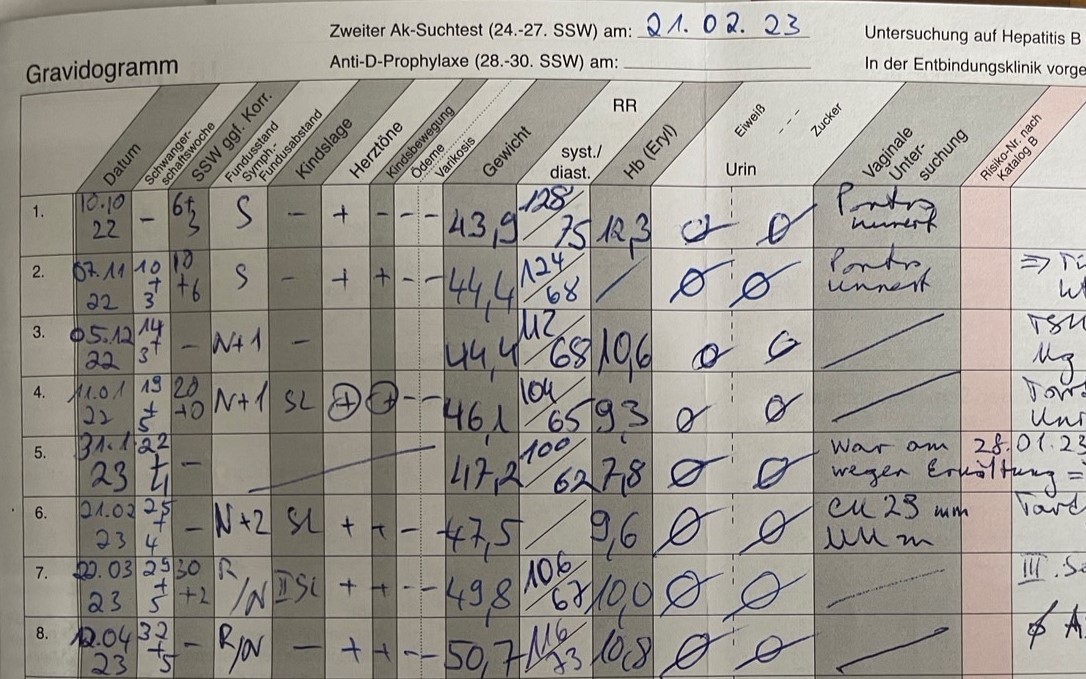 Zweiter Ak-Suchtest (24.-27. SSW) am: 21.02.23
Untersuchung auf Hepatitis B
Gravidogramm
Anti-D-Prophylaxe (28.-30. SSW) am:
In der Entbindungsklinik vorge
Datum
Schwanger-
schaftswoche
SSW ggf. Korr.
Fundusstand
Symph.-
Fundusabstand
Kindslage
Herztöne
Kindsbewegung
Ödeme
Varikosis
Gewicht
RR
syst./
diast.
Hb (Ery/)
Eiweiß
Zucker
Urin
Vaginale
Unter-
suchung
Risiko-Nr. nach
Katalog B
1. 10.10 22 - 6+3 S - + - - - 43,9 128/75 12,3 ø ø
2. 07.11 22 10+3 10+6 S - + + - - 44,4 124/68 / ø ø
3. 05.12 22 14+3 - N+1 - 44,4 112/68 10,6 ø ø
4. 11.01 22 19+5 20+0 N+1 SL + + - - 46,1 104/65 9,3 ø ø
5. 31.1 23 22+4 - 47,2 100/62 7,8 ø ø War am 28.01.23
wegen Erkältung =
6. 21.02 23 25+4 - N+2 SL + + - 47,5 / 9,6 ø ø CK 29 mm
7. 22.03 23 29+5 30+2 R/N II SL + + - - 49,8 106/67 10,0 ø ø III.
8. 12.04 23 32+5 - R/N - + + - - 50,7 116/73 10,8 ø ø